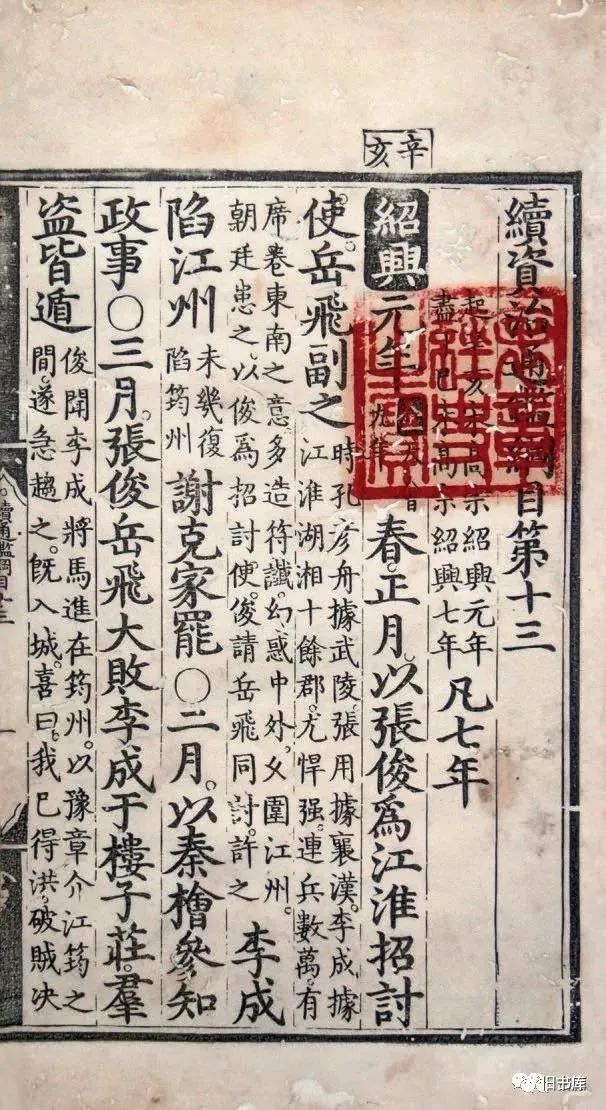 辛亥
續資治通鑑綱目第十三
起辛亥宋高宗紹興元年
盡丁巳宋高宗紹興七年
凡七年
紹興元年
金天會
九年
春。正月。以張俊爲江淮招討
使。岳飛副之
時孔彥舟據武陵。張用據襄漢。李成據
江淮湖湘十餘郡。尤悍强。連兵數萬。有
席卷東南之意。多造符讖。幻惑中外。久圍江州。
朝廷患之。以俊爲招討使。俊請岳飛同討。許之
李成
陷江州
未幾復
陷筠州
謝克家罷〇二月。以秦檜參知
政事〇三月。張俊岳飛大敗李成于樓子莊。羣
盜皆遁
俊聞李成將馬進在筠州。以豫章介江筠之
間。遂急趨之。旣入城。喜曰。我已得洪。破賊决
續通鑑綱目十三
旧书库